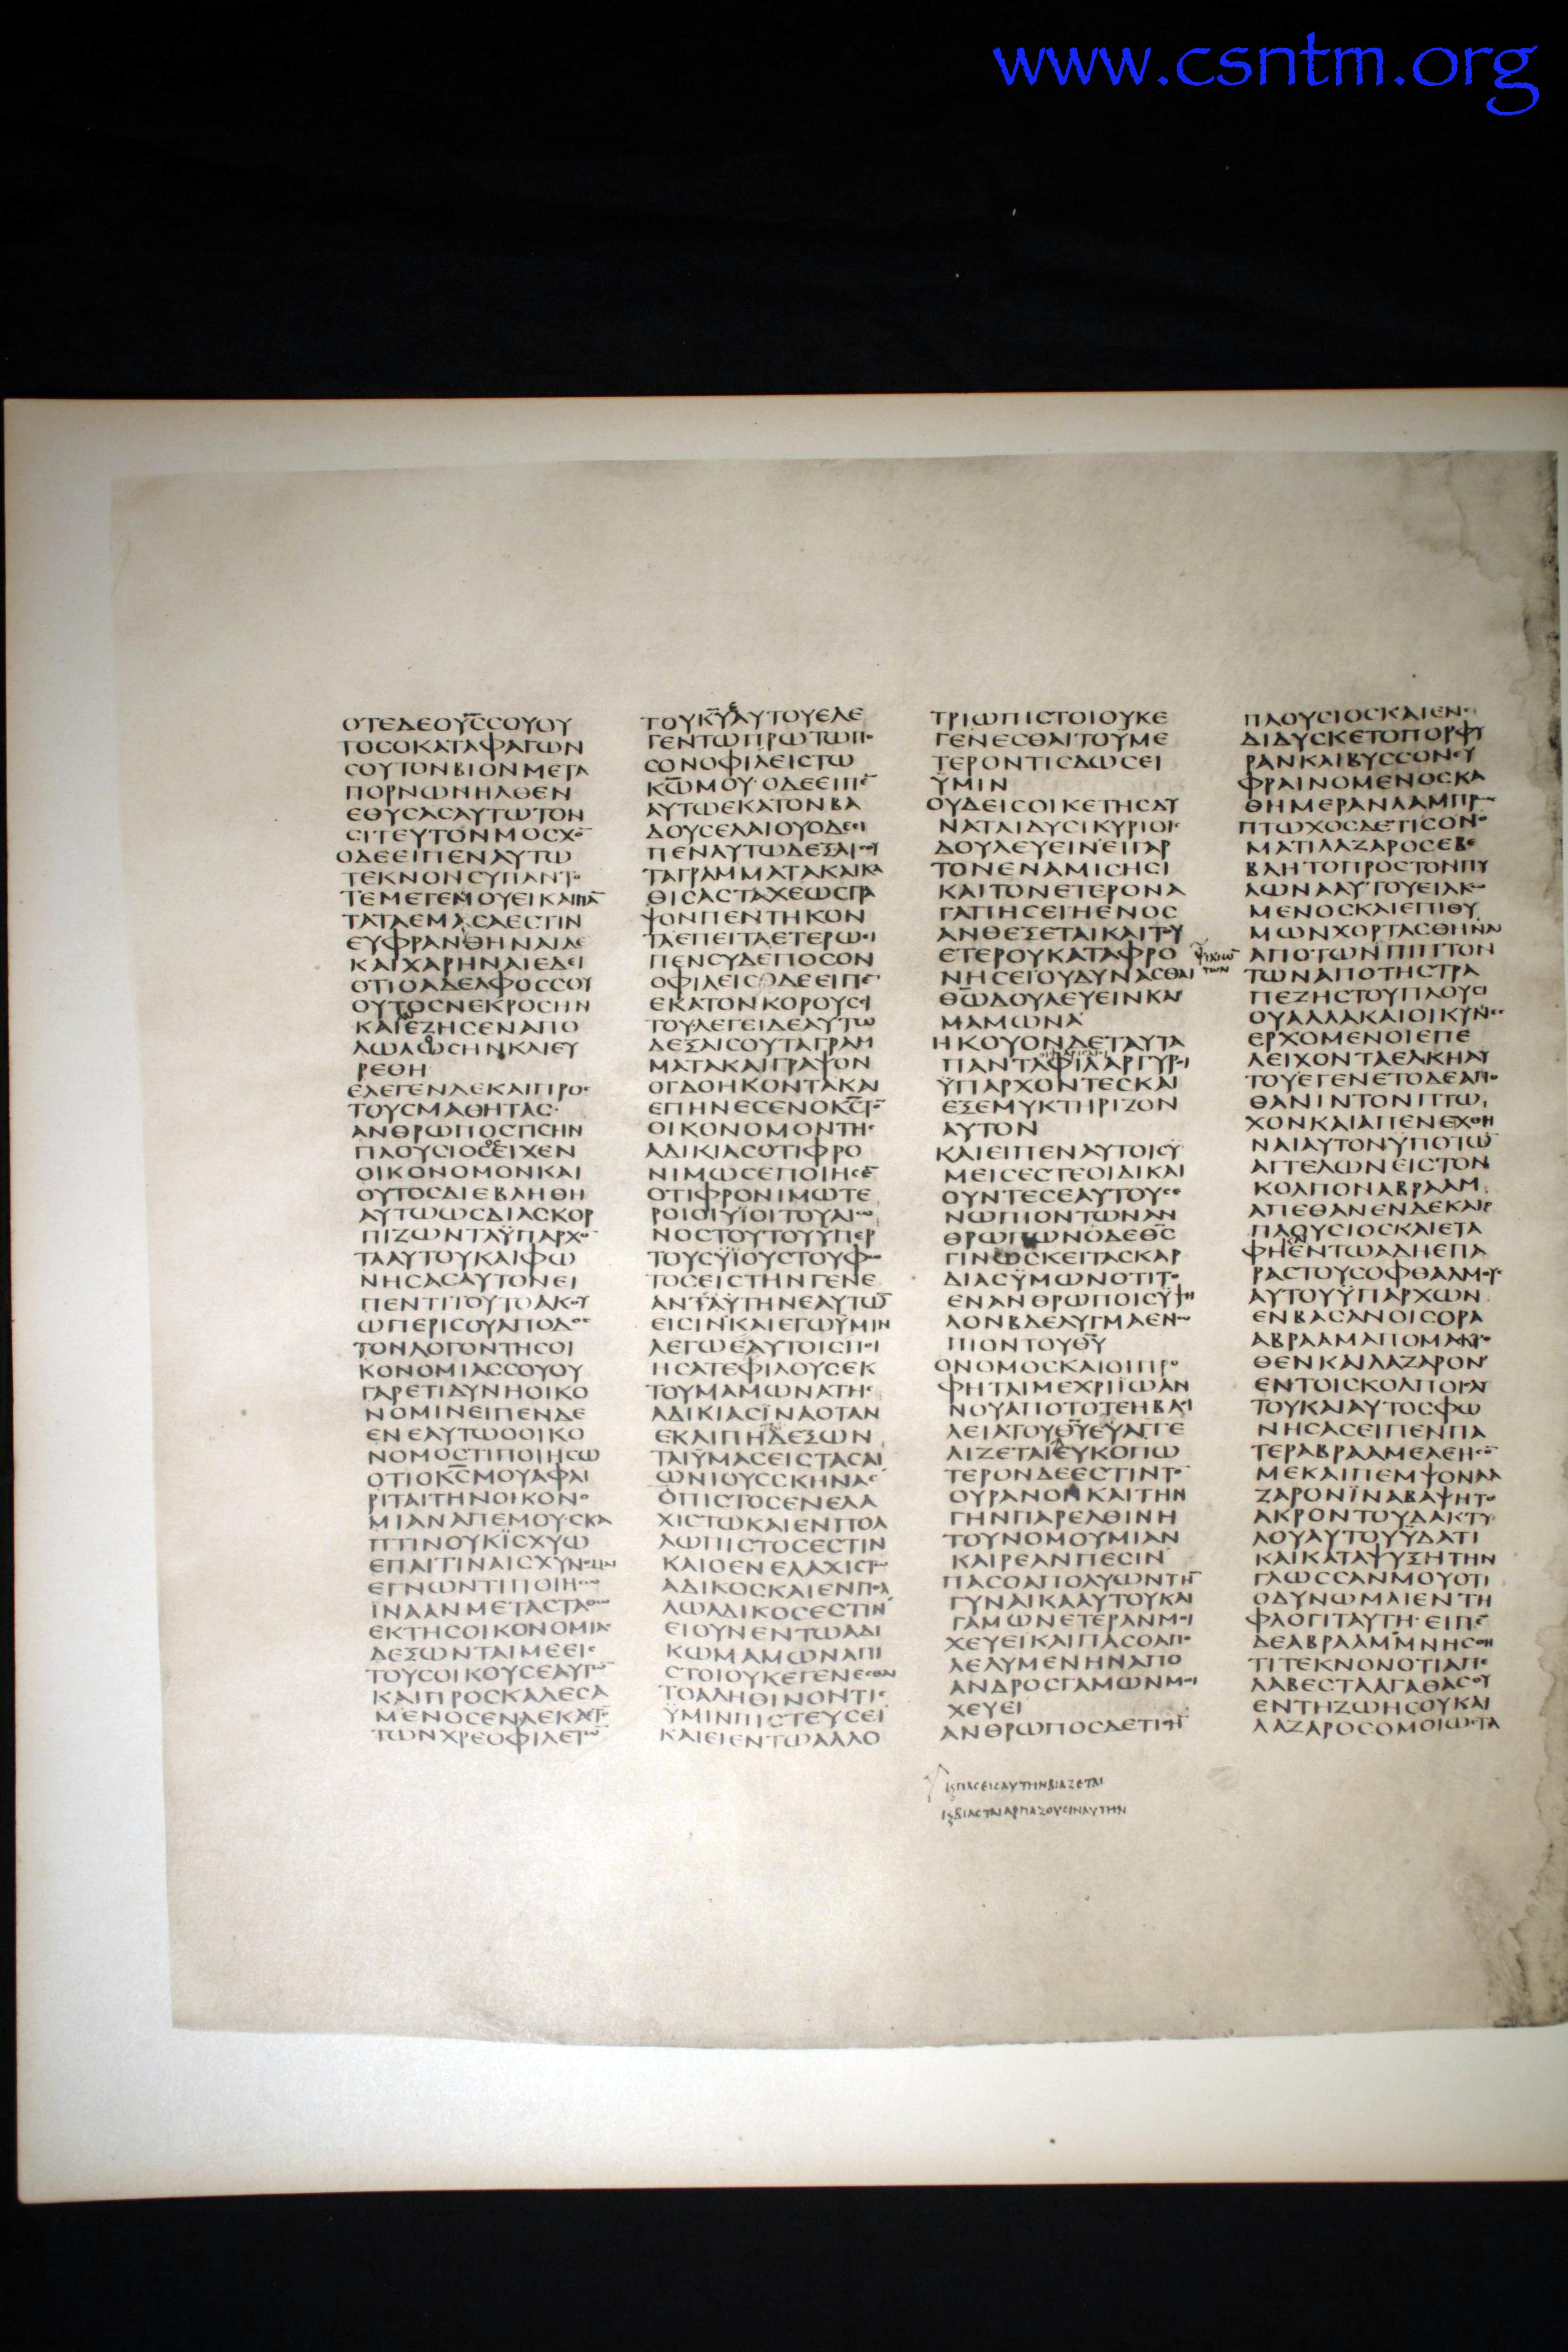 www.csntm.org
ΟΤΕΔΕΟΥ͞ССΟΥΟΥ
ΤΟСΟΚΑΤΑΦΑΓΩΝ
СΟΥΤΟΝΒΙΟΝΜΕΤΑ
ΠΟΡΝΩΝΗΛΘΕΝ
ΕΘΥСΑСΑΥΤΩΤΟΝ
СΙΤΕΥΤΟΝΜΟСΧΟ̅
ΟΔΕΕΙΠΕΝΑΥΤΩ
ΤΕΚΝΟΝСΥΠΑΝΤΟ
ΤΕΜΕΤΕΜΟΥΕΙΚΑΙΠΑ̅
ΤΑΤΑΕΜΑСΑΕСΤΙΝ
ΕΥΦΡΑΝΘΗΝΑΙΔΕ
ΚΑΙΧΑΡΗΝΑΙΕΔΕΙ
ΟΤΙΟΑΔΕΛΦΟССΟΥ
ΟΥΤΟСΝΕΚΡΟСΗΝ
ΚΑΙΕΖΗСΕΝΑΠΟ
ΛΩΛΩСΗΝΚΑΙΕΥ
ΡΕΘΗ
ΕΛΕΓΕΝΔΕΚΑΙΠΡΟ
ΤΟΥСΜΑΘΗΤΑС
ΑΝΘΡΩΠΟСΤΙСΗΝ
ΠΛΟΥСΙΟСΕΙΧΕΝ
ΟΙΚΟΝΟΜΟΝΚΑΙ
ΟΥΤΟСΔΙΕΒΛΗΘΗ
ΑΥΤΩΩСΔΙΑСΚΟΡ
ΠΙΖΩΝΤΑΫΠΑΡΧΟ
ΤΑΑΥΤΟΥΚΑΙΦΩ
ΝΗСΑСΑΥΤΟΝΕΙ
ΠΕΝΤΙΤΟΥΤΟΑΚΟΥ
ΩΠΕΡΙСΟΥΑΠΟΔΟС
ΤΟΝΛΟΓΟΝΤΗСΟΙ
ΚΟΝΟΜΙΑССΟΥΟΥ
ΓΑΡΕΤΙΔΥΝΗΟΙΚΟ
ΝΟΜΙΝΕΙΠΕΝΔΕ
ΕΝΕΑΥΤΩΟΟΙΚΟ
ΝΟΜΟСΤΙΠΟΙΗСΩ
ΟΤΙΟΚ͞СΜΟΥΑΦΑΙ
ΡΙΤΑΙΤΗΝΟΙΚΟΝΟ
ΜΙΑΝΑΠΕΜΟΥСΚΑ
ΠΤΙΝΟΥΚΪСΧΥΩ
ΕΠΑΙΤΙΝΑΙСΧΥΝΟΜΑΙ
ΕΓΝΩΝΤΙΠΟΙΗСΩ
ΪΝΑΑΝΜΕΤΑСΤΑΘΩ
ΕΚΤΗСΟΙΚΟΝΟΜΙΑС
ΔΕΞΩΝΤΑΙΜΕΕΙС
ΤΟΥСΟΙΚΟΥСΕΑΥΤΩ̅
ΚΑΙΠΡΟСΚΑΛΕСΑ
ΜΕΝΟСΕΝΑΕΚΑСΤΟ̅
ΤΩΝΧΡΕΟΦΙΛΕΤΩ̅
ΤΟΥΚ͞ΥΑΥΤΟΥΕΛΕ
ΓΕΝΤΩΠΡΩΤΩΠΟ
СΟΝΟΦΙΛΕΙСΤΩ
Κ͞ΩΜΟΥ·ΟΔΕΕΙΠΕ̅
ΑΥΤΩΕΚΑΤΟΝΒΑ
ΔΟΥСΕΛΑΙΟΥΟΔΕΕΙ
ΠΕΝΑΥΤΩΔΕΞΑΙСΟΥ
ΤΑΓΡΑΜΜΑΤΑΚΑΙΚΑ
ΘΙСΑСΤΑΧΕΩСΓΡΑ
ΨΟΝΠΕΝΤΗΚΟΝ
ΤΑΕΠΕΙΤΑΕΤΕΡΩΕΙ
ΠΕΝСΥΔΕΠΟСΟΝ
ΟΦΙΛΕΙСΟΔΕΕΙΠΕ̅
ΕΚΑΤΟΝΚΟΡΟΥССΙ
ΤΟΥΛΕΓΕΙΔΕΑΥΤΩ
ΔΕΞΑΙСΟΥΤΑΓΡΑΜ
ΜΑΤΑΚΑΙΓΡΑΨΟΝ
ΟΓΔΟΗΚΟΝΤΑΚΑΙ
ΕΠΗΝΕСΕΝΟΚ͞СΤΟ̅
ΟΙΚΟΝΟΜΟΝΤΗС
ΑΔΙΚΙΑСΟΤΙΦΡΟ
ΝΙΜΩСΕΠΟΙΗСΕ̅
ΟΤΙΦΡΟΝΙΜΩΤΕ
ΡΟΙΟΙΥΪΟΙΤΟΥΑΙΩ
ΝΟСΤΟΥΤΟΥΥΠΕΡ
ΤΟΥСΥΪΟΥСΤΟΥΦΩ
ΤΟСΕΙСΤΗΝΓΕΝΕ
ΑΝΤΑΥΤΗΝΕΑΥΤΩ̅
ΕΙСΙΝΚΑΙΕΓΩΫΜΙΝ
ΛΕΓΩΕΑΥΤΟΙСΠΟΙ
ΗСΑΤΕΦΙΛΟΥСΕΚ
ΤΟΥΜΑΜΩΝΑΤΗС
ΑΔΙΚΙΑСΪΝΑΟΤΑΝ
ΕΚΛΙΠΗΔΕΞΩΝ
ΤΑΙΫΜΑСΕΙСΤΑСΑΙ
ΩΝΙΟΥССΚΗΝΑС
ΟΠΙСΤΟСΕΝΕΛΑ
ΧΙСΤΩΚΑΙΕΝΠΟΛ
ΛΩΠΙСΤΟСΕСΤΙΝ
ΚΑΙΟΕΝΕΛΑΧΙСΤΩ
ΑΔΙΚΟСΚΑΙΕΝΠΟΛ
ΛΩΑΔΙΚΟСΕСΤΙΝ
ΕΙΟΥΝΕΝΤΩΑΔΙ
ΚΩΜΑΜΩΝΑΠΙ
СΤΟΙΟΥΚΕΓΕΝΕСΘΑΙ
ΤΟΑΛΗΘΙΝΟΝΤΙС
ΫΜΙΝΠΙСΤΕΥСΕΙ
ΚΑΙΕΙΕΝΤΩΑΛΛΟ
ΤΡΙΩΠΙСΤΟΙΟΥΚΕ
ΓΕΝΕСΘΑΙΤΟΥΜΕ
ΤΕΡΟΝΤΙСΔΩСΕΙ
ΫΜΙΝ
ΟΥΔΕΙСΟΙΚΕΤΗСΔΥ
ΝΑΤΑΙΔΥСΙΚΥΡΙΟΙС
ΔΟΥΛΕΥΕΙΝΕΙΓΑΡ
ΤΟΝΕΝΑΜΙСΗСΙ
ΚΑΙΤΟΝΕΤΕΡΟΝΑ
ΓΑΠΗСΕΙΗΕΝΟС
ΑΝΘΕΞΕΤΑΙΚΑΙΤΟΥ
ΕΤΕΡΟΥΚΑΤΑΦΡΟ
ΝΗСΕΙΟΥΔΥΝΑСΘΑΙ
Θ͞ΩΔΟΥΛΕΥΕΙΝΚΑΙ
ΜΑΜΩΝΑ
ΗΚΟΥΟΝΔΕΤΑΥΤΑ
ΠΑΝΤΑΦΙΛΑΡΓΥΡΟΙ
ΫΠΑΡΧΟΝΤΕСΚΑΙ
ΕΞΕΜΥΚΤΗΡΙΖΟΝ
ΑΥΤΟΝ
ΚΑΙΕΙΠΕΝΑΥΤΟΙСΥ
ΜΕΙСΕСΤΕΟΙΔΙΚΑΙ
ΟΥΝΤΕСΕΑΥΤΟΥСΕ
ΝΩΠΙΟΝΤΩΝΑΝ
ΘΡΩΠΩΝΟΔΕΘ͞С
ΓΙΝΩСΚΕΙΤΑСΚΑΡ
ΔΙΑСΫΜΩΝΟΤΙΤΟ
ΕΝΑΝΘΡΩΠΟΙСΫΨΗ
ΛΟΝΒΔΕΛΥΓΜΑΕΝΩ
ΠΙΟΝΤΟΥΘ͞Υ
ΟΝΟΜΟСΚΑΙΟΙΠΡΟ
ΦΗΤΑΙΜΕΧΡΙΪΩΑΝ
ΝΟΥΑΠΟΤΟΤΕΗΒΑСΙ
ΛΕΙΑΤΟΥΘ͞ΥΕΥΑΓΓΕ
ΛΙΖΕΤΑΙΕΥΚΟΠΩ
ΤΕΡΟΝΔΕΕСΤΙΝΤΟ̅
ΟΥΡΑΝΟΝΚΑΙΤΗΝ
ΓΗΝΠΑΡΕΛΘΙΝΗ
ΤΟΥΝΟΜΟΥΜΙΑΝ
ΚΑΙΡΕΑΝΠΕСΙΝ
ΠΑСΟΑΠΟΛΥΩΝΤΗ̅
ΓΥΝΑΙΚΑΑΥΤΟΥΚΑΙ
ΓΑΜΩΝΕΤΕΡΑΝΜΟΙ
ΧΕΥΕΙΚΑΙΠΑСΟΑΠΟ
ΛΕΛΥΜΕΝΗΝΑΠΟ
ΑΝΔΡΟСΓΑΜΩΝΜΟΙ
ΧΕΥΕΙ
ΑΝΘΡΩΠΟСΔΕΤΙСΗ̅
ΠΑСΕΙСΑΥΤΗΝΒΙΑΖΕΤΑΙ
ΒΙΑСΤΑΙΑΡΠΑΖΟΥСΙΝΑΥΤΗΝ
ΠΛΟΥСΙΟСΚΑΙΕΝΕ
ΔΙΔΥСΚΕΤΟΠΟΡΦΥ
ΡΑΝΚΑΙΒΥССΟΝΕΥ
ΦΡΑΙΝΟΜΕΝΟСΚΑ
ΘΗΜΕΡΑΝΛΑΜΠΡΩС
ΠΤΩΧΟСΔΕΤΙСΟΝΟ
ΜΑΤΙΛΑΖΑΡΟСΕΒΕ
ΒΛΗΤΟΠΡΟСΤΟΝΠΥ
ΛΩΝΑΑΥΤΟΥΕΙΛΚΩ
ΜΕΝΟСΚΑΙΕΠΙΘΥ
ΜΩΝΧΟΡΤΑСΘΗΝΑΙ
ΑΠΟΤΩΝΠΙΠΤΟΝ
ΤΩΝΑΠΟΤΗСΤΡΑ
ΠΕΖΗСΤΟΥΠΛΟΥСΙ
ΟΥΑΛΛΑΚΑΙΟΙΚΥΝΕС
ΕΡΧΟΜΕΝΟΙΕΠΕ
ΛΕΙΧΟΝΤΑΕΛΚΗΑΥ
ΤΟΥΕΓΕΝΕΤΟΔΕΑΠΟ
ΘΑΝΙΝΤΟΝΠΤΩ
ΧΟΝΚΑΙΑΠΕΝΕΧΘΗ
ΝΑΙΑΥΤΟΝΥΠΟΤΩ̅
ΑΓΓΕΛΩΝΕΙСΤΟΝ
ΚΟΛΠΟΝΑΒΡΑΑΜ
ΑΠΕΘΑΝΕΝΔΕΚΑΙΟ
ΠΛΟΥСΙΟСΚΑΙΕΤΑ
ΦΗΕΝΤΩΑΔΗΕΠΑ
ΡΑСΤΟΥСΟΦΘΑΛΜΟΥС
ΑΥΤΟΥΫΠΑΡΧΩΝ
ΕΝΒΑСΑΝΟΙСΟΡΑ
ΑΒΡΑΑΜΑΠΟΜΑΚΡΟ
ΘΕΝΚΑΙΛΑΖΑΡΟΝ
ΕΝΤΟΙСΚΟΛΠΟΙСΑΥ
ΤΟΥΚΑΙΑΥΤΟСΦΩ
ΝΗСΑСΕΙΠΕΝΠΑ
ΤΕΡΑΒΡΑΑΜΕΛΕΗСΟ̅
ΜΕΚΑΙΠΕΜΨΟΝΛΑ
ΖΑΡΟΝΪΝΑΒΑΨΗΤΟ
ΑΚΡΟΝΤΟΥΔΑΚΤΥ
ΛΟΥΑΥΤΟΥΫΔΑΤΙ
ΚΑΙΚΑΤΑΨΥΞΗΤΗΝ
ΓΛΩССΑΝΜΟΥΟΤΙ
ΟΔΥΝΩΜΑΙΕΝΤΗ
ΦΛΟΓΙΤΑΥΤΗ·ΕΙΠΕ̅
ΔΕΑΒΡΑΑΜΜΝΗСΘΗ
ΤΙΤΕΚΝΟΝΟΤΙΑΠΕ
ΛΑΒΕСΤΑΑΓΑΘΑСΟΥ
ΕΝΤΗΖΩΗСΟΥΚΑΙ
ΛΑΖΑΡΟСΟΜΟΙΩСΤΑ